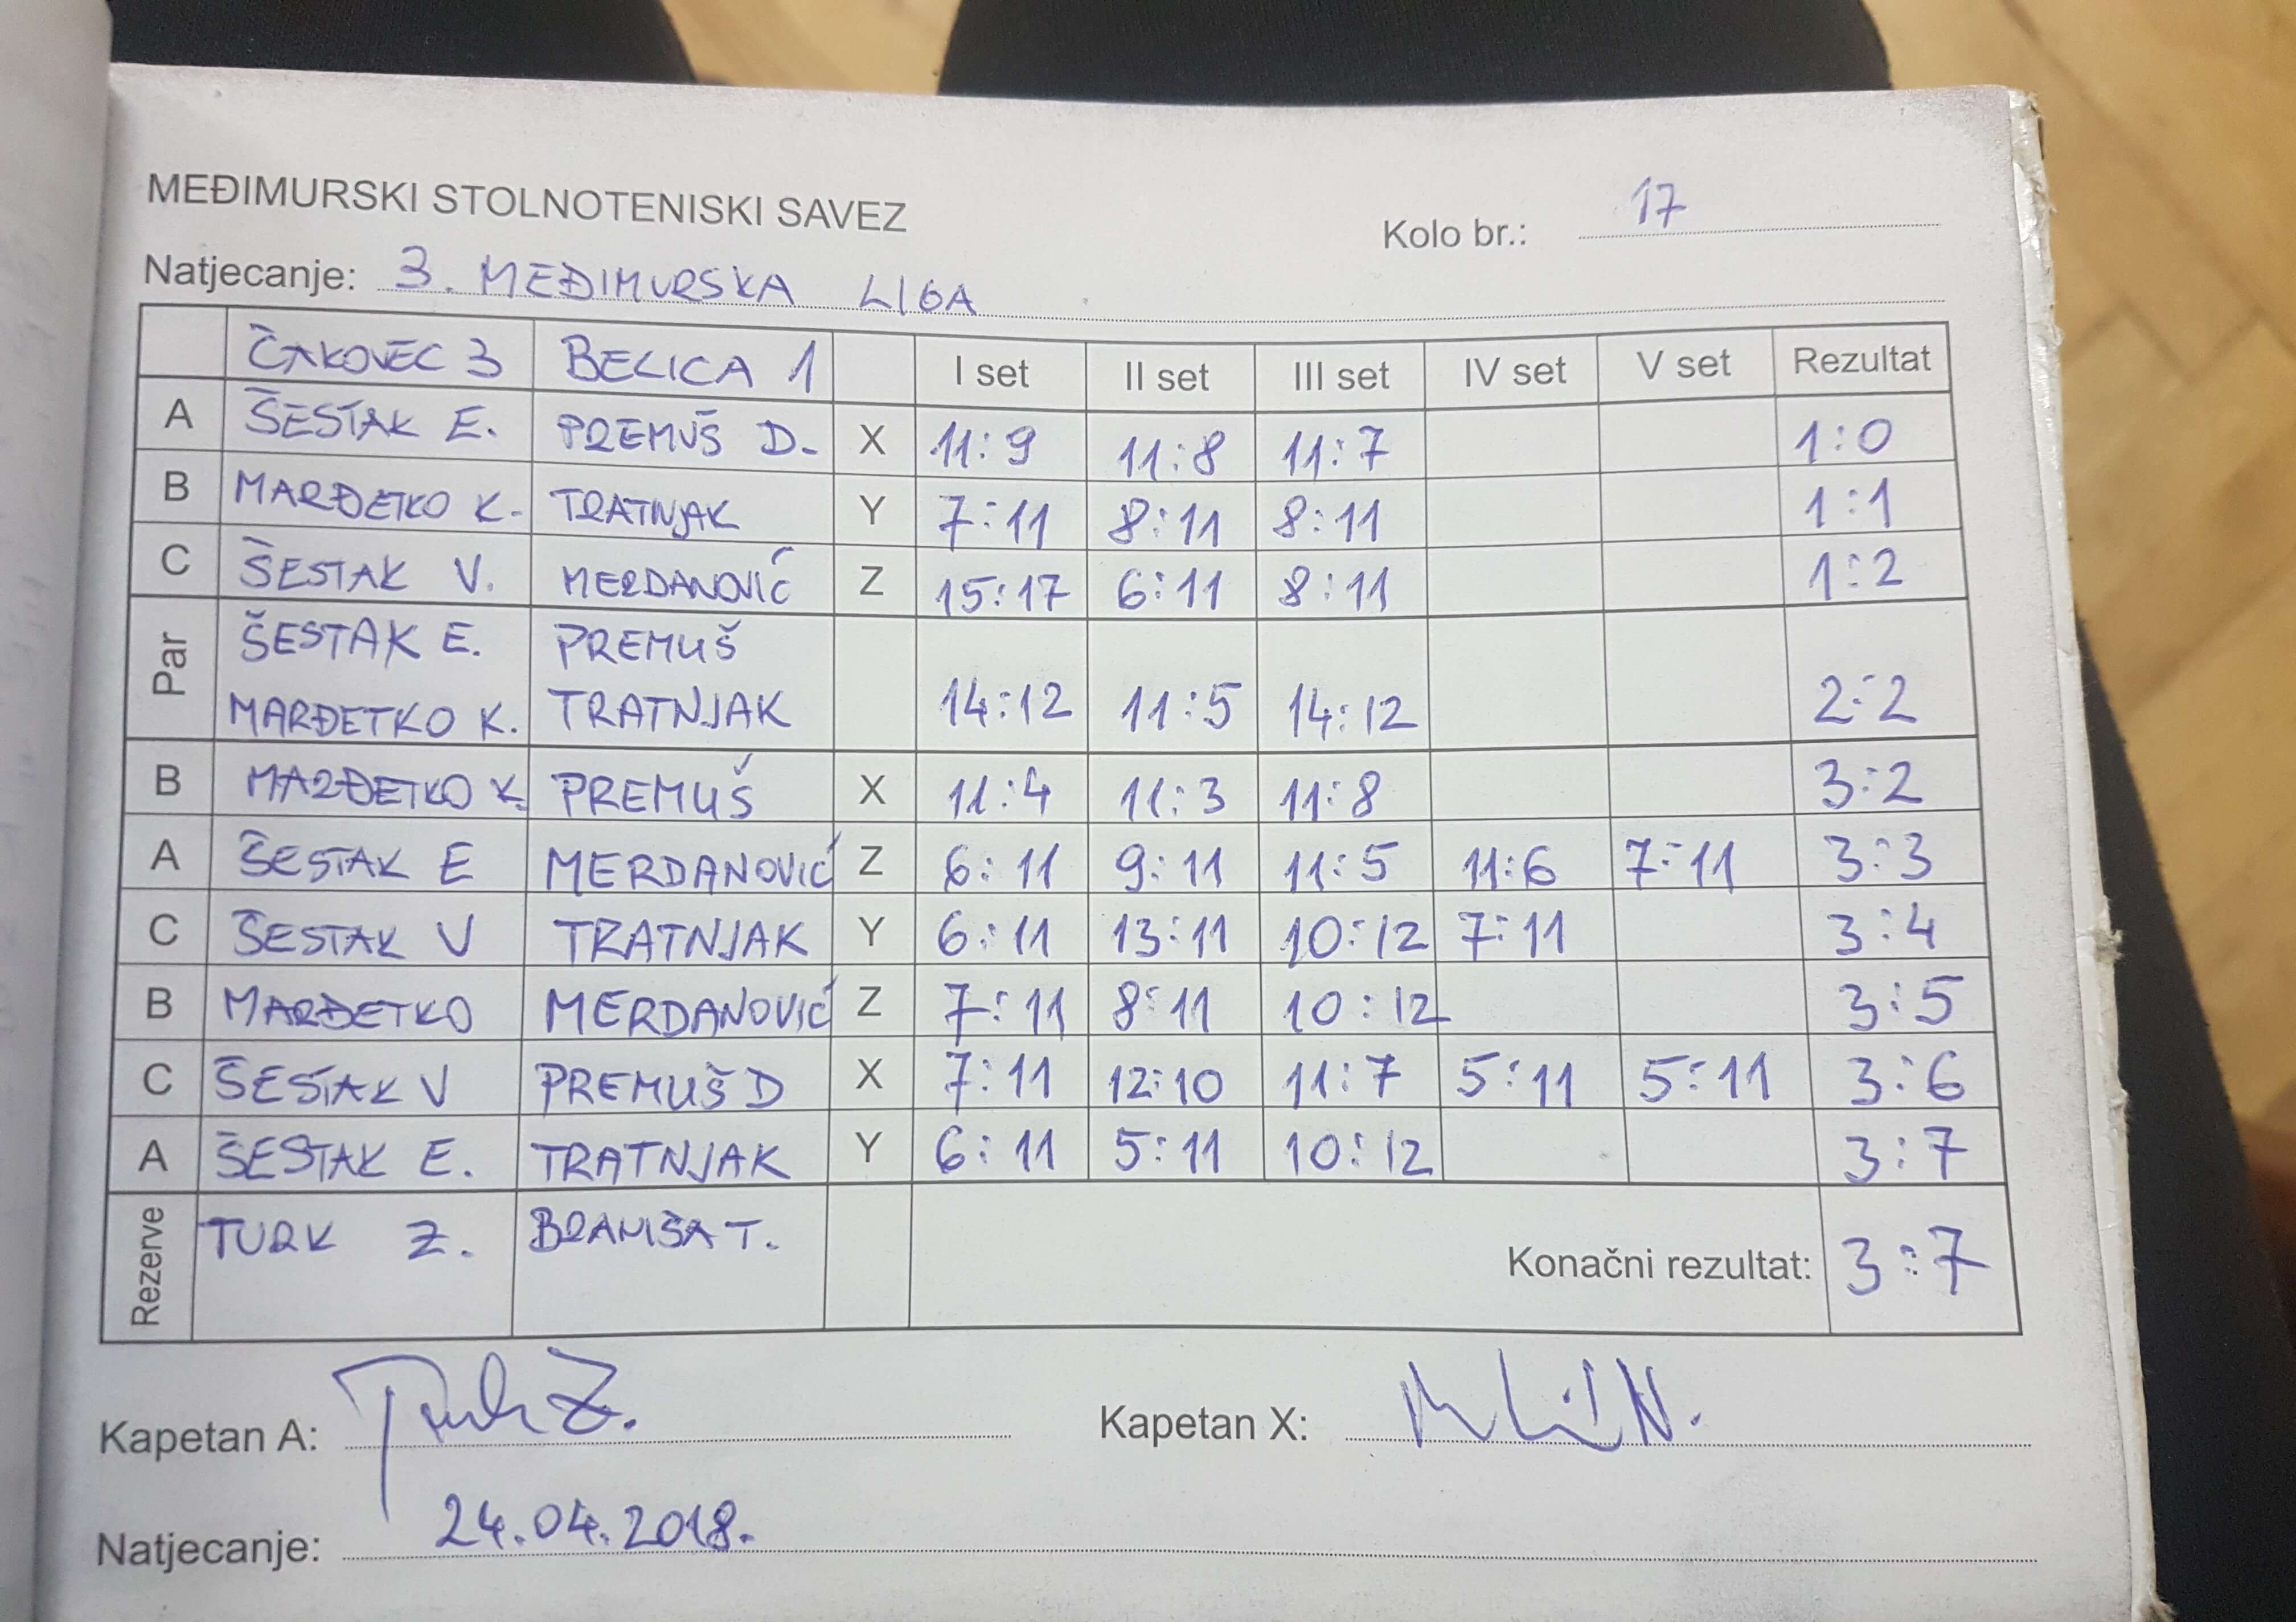 MEĐIMURSKI STOLNOTENISKI SAVEZ
Kolo br.: 17
Natjecanje: 3. MEĐIMURSKA LIGA
ČAKOVEC 3 BELICA 1 I set II set III set IV set V set Rezultat
A ŠESTAK E. PREMUŠ D. X 11:9 11:8 11:7 1:0
B MARĐETKO K. TRATNJAK Y 7:11 8:11 8:11 1:1
C ŠESTAK V. MERDANOVIĆ Z 15:17 6:11 8:11 1:2
Par ŠESTAK E. PREMUŠ
MARĐETKO K. TRATNJAK 14:12 11:5 14:12 2:2
B MARĐETKO K. PREMUŠ X 11:4 11:3 11:8 3:2
A ŠESTAK E MERDANOVIĆ Z 6:11 9:11 11:5 11:6 7:11 3:3
C ŠESTAK V TRATNJAK Y 6:11 13:11 10:12 7:11 3:4
B MARĐETKO MERDANOVIĆ Z 7:11 8:11 10:12 3:5
C ŠESTAK V PREMUŠ D X 7:11 12:10 11:7 5:11 5:11 3:6
A ŠESTAK E. TRATNJAK Y 6:11 5:11 10:12 3:7
Rezerve TURK Z. BRANIŠA T.
Konačni rezultat: 3:7
Kapetan A: Turk Z. Kapetan X:
Natjecanje: 24.04.2018.